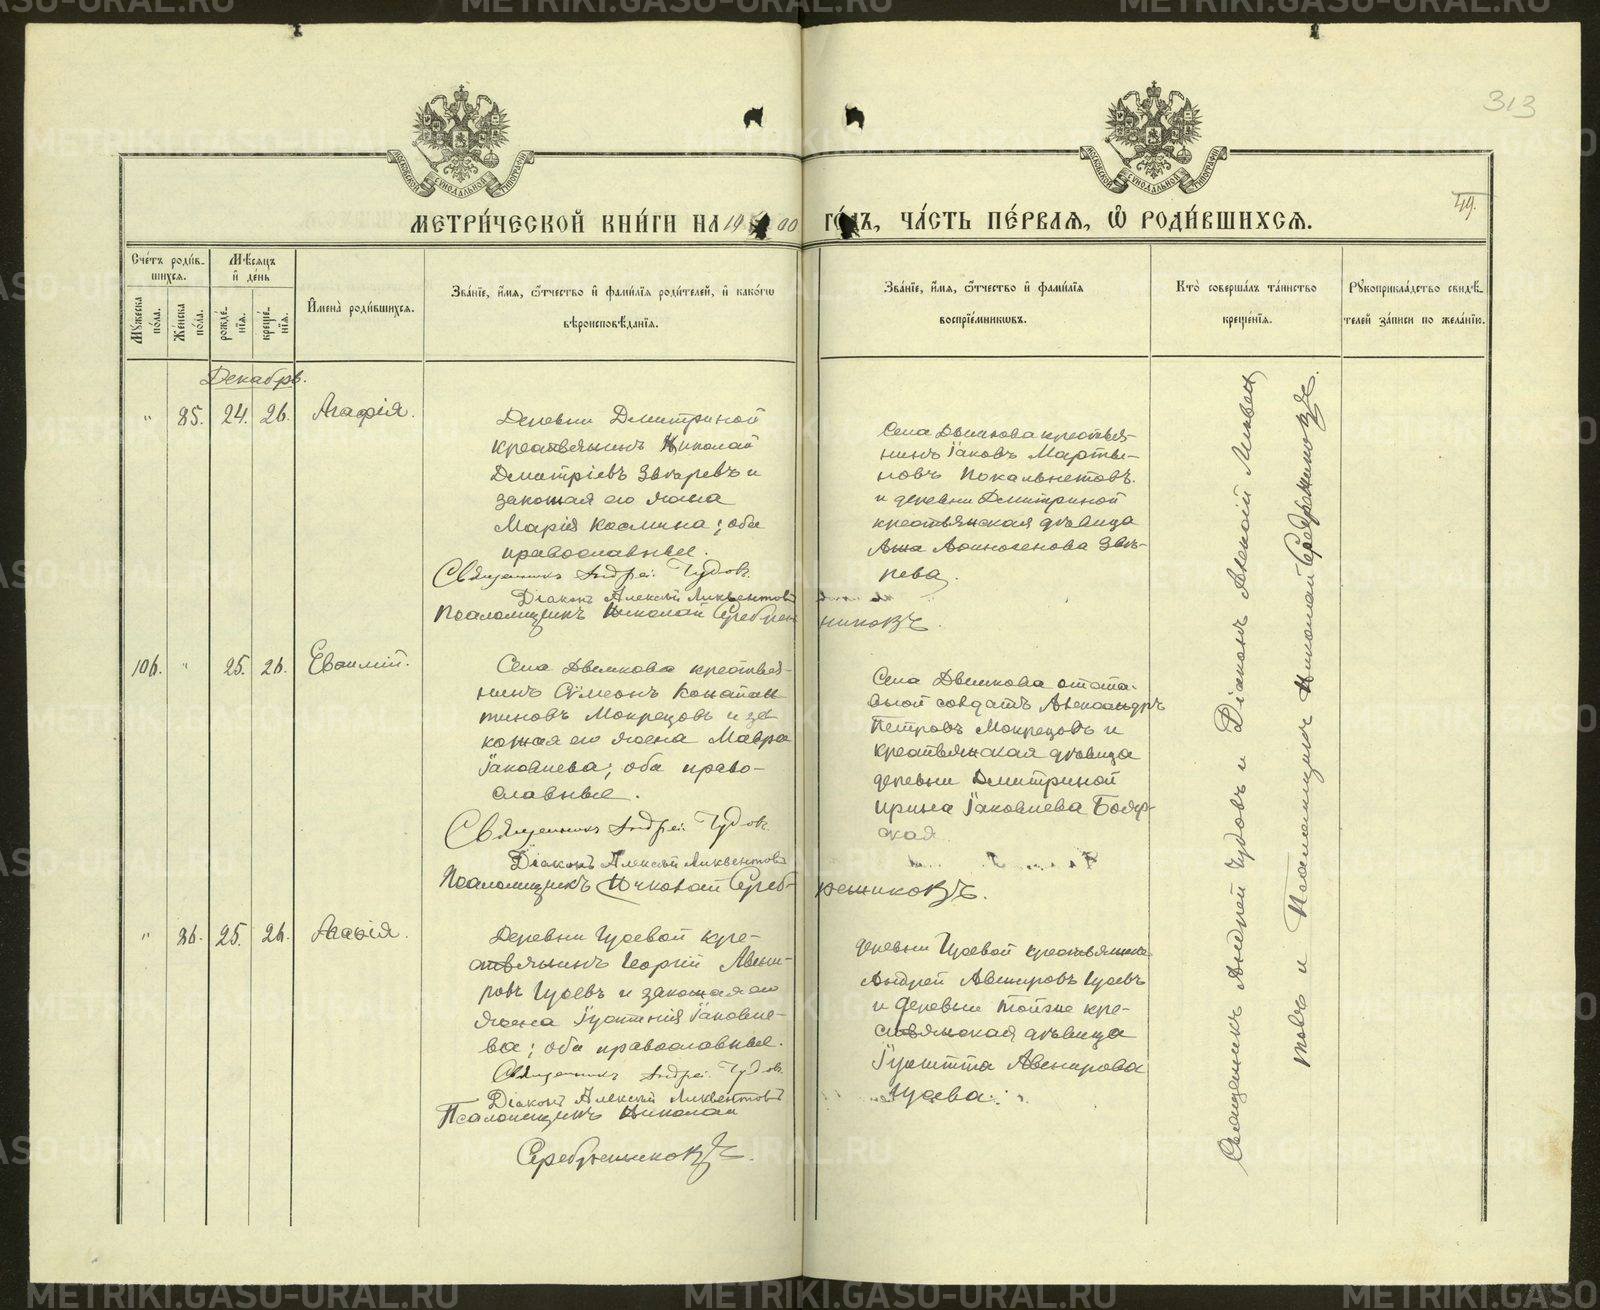 313
49.
МЕТРИ́ЧЕСКОЙ КНИ́ГИ НА 1900 ГО́ДЪ, ЧА́СТЬ ПЕ́РВАЯ, Ѡ РОДИ́ВШИХСЯ.
Сче́тъ роди́вшихся.
Мужеска по́ла.
Женска по́ла.
Мѣ́сяцъ и҆ де́нь
рожде́нїя.
креще́нїя.
И҆мена̀ роди́вшихся.
Зва́нїе, и҆́мя, ѻ҆́тчество и҆ фами́лїя роди́телей, и҆ како́гѡ
вѣроисповѣ́данїя.
Зва́нїе, и҆́мя, ѻ҆́тчество и҆ фами́лїя
воспрїе́мникѡвъ.
Кто̀ соверша́лъ та́инство
креще́нїя.
Рꙋкоприкла́дство свидѣ́телей за́писи по жела́нїю.
Декабрь.
" 85. 24. 26. Агафія.
Деревни Дмитриной
крестьянинъ Николай
Дмитріевъ Звѣревъ и
законная его жена
Марія Космина; оба
православные.
Священникъ Андрей Чудовъ.
Діаконъ Алексѣй Ликвентовъ
Псаломщикъ Николай Серебренниковъ.
Села Двинкова крестья-
нинъ Іаковъ Марты-
новъ
и деревни Дмитриной
крестьянская дѣвица
Анна Аѳиногенова Звѣ-
рева.
106. " 25. 26. Евѳимій.
Села Двинкова крестья-
нинъ Сѷмеонъ Констан
тиновъ Мокрецовъ и за
конная его жена Мавра
Іаковлева; оба право-
славные.
Священникъ Андрей Чудовъ.
Діаконъ Алексѣй Ликвентовъ
Псаломщикъ Николай Сереб-
ренниковъ.
Села Двинкова отста-
вной солдатъ Александръ
Петровъ Мокрецовъ и
крестьянская дѣвица
деревни Дмитриной
Ирина Іаковлева Бояр-
ская
" 86. 25. 26. Агаѳія.
Деревни Гусевой кре-
стьянинъ Георгій Авени-
ровъ Гусевъ и законная его
жена Іустинія Іаковле-
ва; оба православные.
Священникъ Андрей Чудовъ
Діаконъ Алексѣй Ликвентовъ
Псаломщикъ Николай
Серебренниковъ.
деревни Гусевой крестьянинъ
Андрей Авенировъ Гусевъ
и деревни кре-
стьянская дѣвица
Авенирова
Гусева.
Священникъ Андрей Чудовъ и Діаконъ Алексѣй Ликвен
товъ и Псаломщикъ Николай Серебренниковъ.